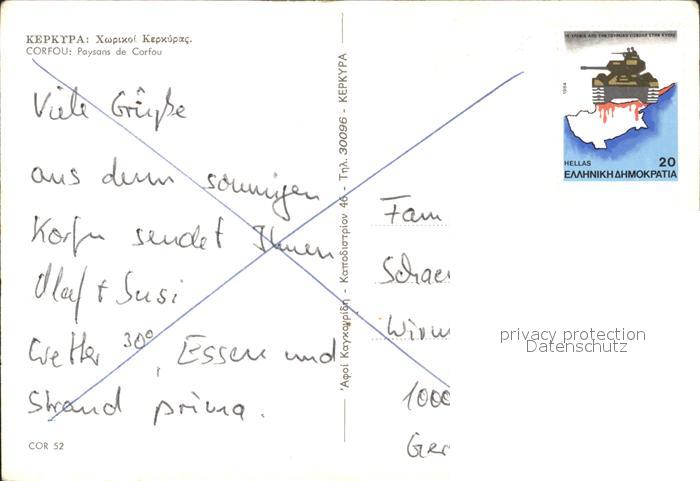 ΚΕΡΚΥΡΑ: Χωρικοί Κερκύρας.
CORFOU: Paysans de Corfou
Viele Grüße
aus dem sonnigen
Korfu sendet Ihnen
Olaf + Susi
Wetter 30°, Essen und
Strand prima.
COR 52
Ἀφοί Καγκαρίδη - Καποδιστρίου 46 - Τηλ. 30096 - ΚΕΡΚΥΡΑ
1984
HELLAS 20
ΕΛΛΗΝΙΚΗ ΔΗΜΟΚΡΑΤΙΑ
Fam
Schae
Wirm
privacy protection
Datenschutz
1000
Ger